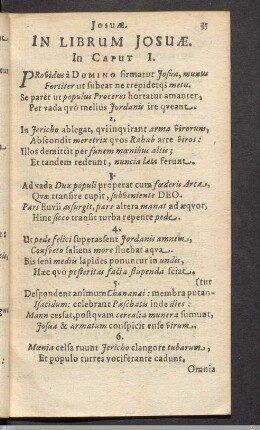 Josuæ. 35
IN LIBRUM JOSUÆ.
In Caput I.
PRovidus à DOMINO firmatur Josua, munus
Fortiter ut subeat ne trepidetqi metu.
Se paret ut populus Proceres hortatur amanter,
Per vada quò melius Jordanis ire queant.
2.
In Jericho ablegat, qvi inqvirant arma virorum,
Abscondit meretrix qvos Rahab arte viros:
Illos demittit per funem mœnibus altis;
Et tandem redeunt, nuncia læta ferunt.
3.
Ad vada Dux populi properat cum fœderis Arca,
Qvæ transire cupit, subveniente DEO.
Pars fluvii assurgit, pars altera manat ad æqvor,
Hinc sicco transit turba repente pede.
4.
Ut pede felici superasent Jordanis amnim,
Consveto saliens more fluebat aqva.
Bis seni mediis lapides ponuntur in undis,
Hæc qvò posteritas facta stupenda sciat.
5. (tur
Despondent animum Chananæi: membra putan-
Jacidum: celebrant Paschatis inde dies:
Mann cessat, postqvam cerealia munera sumunt,
Josua & armatum conspicit ense virum.
6.
Mœnia celsa ruunt Jericho clangore tubarum,
Et populo turres vociferante cadunt.
Omnia